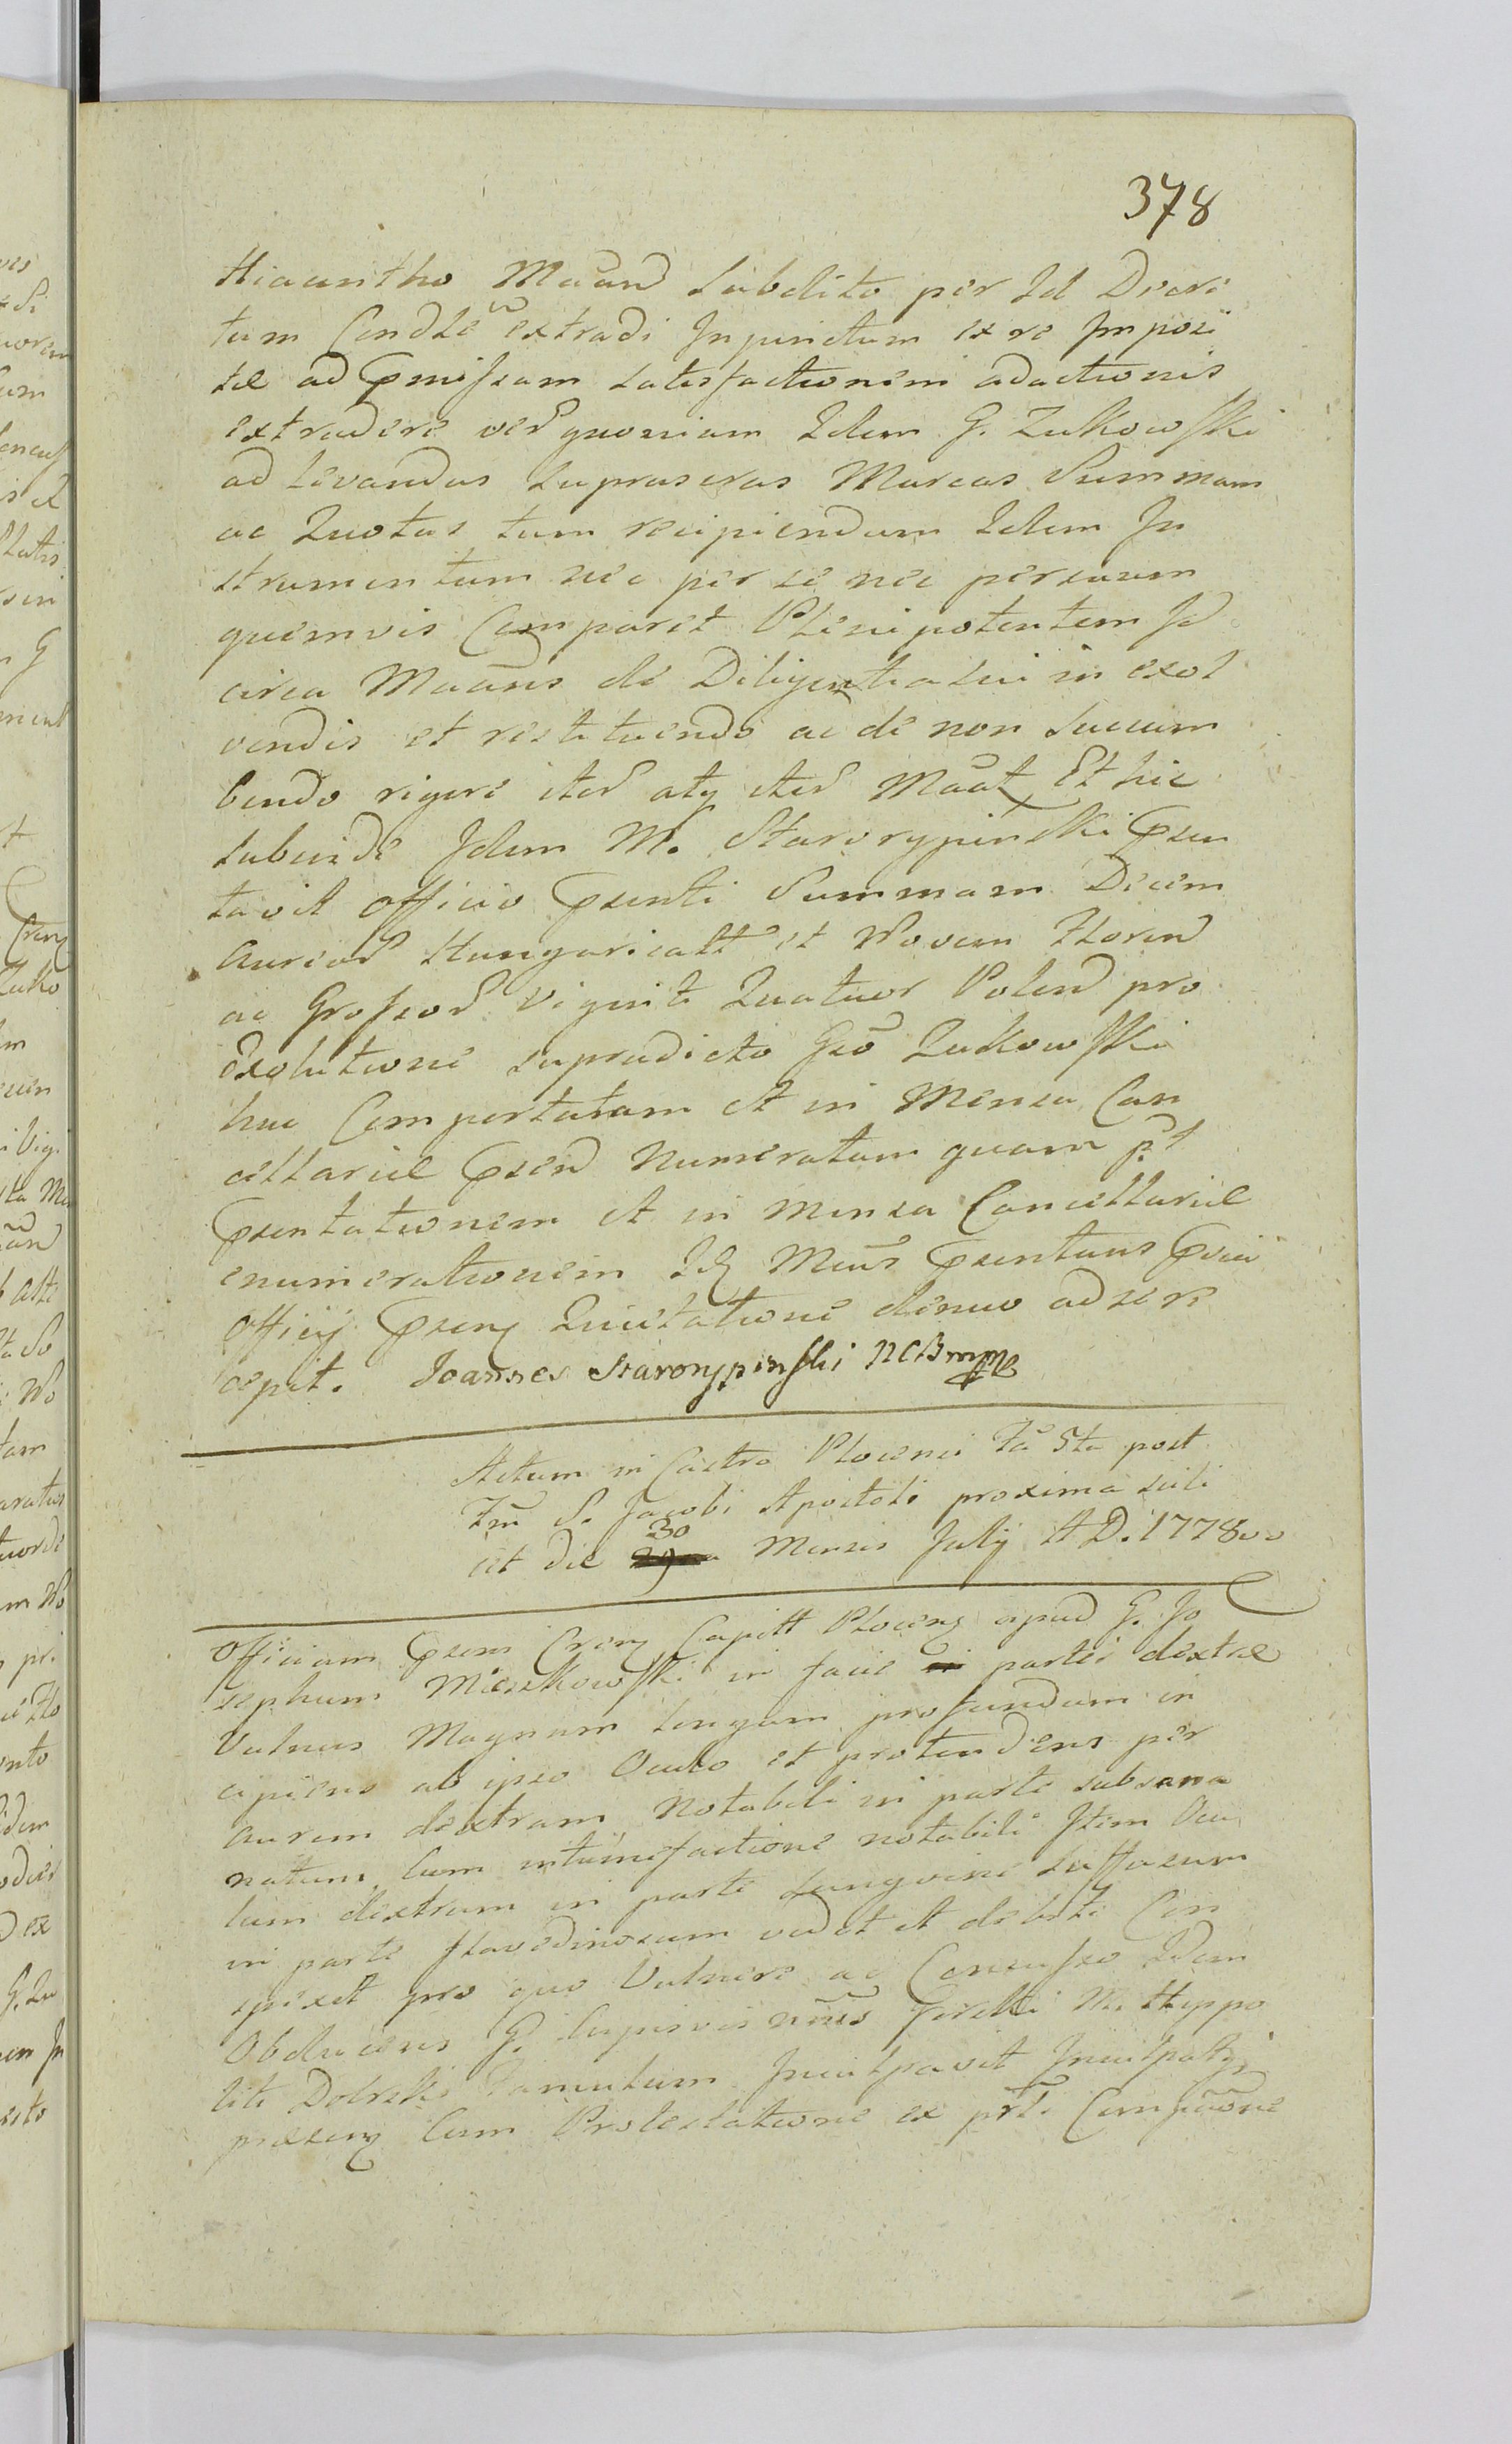 378
Hiacintho Maūn̄ Subdito per Id Decre
tum Condłē extradi Injunctum ex re Imposi
tæ ad Pmissam satisfactionem adactionis
extradere ver̄ quoniam Idem G. Zukowski
ad levandas suprascras Marcas Summam
ac Quotas tum recipiendum Idem In
strumentum nec per se nec personam
quemvis Comparet Plenipotentem Id
circa Maūns de Diligentia sui in exol
vendis et restituendo ac de non succum
bendo rigore iter̄ atq iter̄ Maāt Et hic
subinde Idem M. Starorypinski Psen
tavit Officio Psenti Summam Decem
Aureor̄ Hungaricall et Novem Floren̄
ac Grossor̄ Viginti Quatuor Polen̄ pro
Exolutione supradicto Gso Zukowski
huc Comportatam et in Mensa Can
cellariæ Psen̄ Numeratam quam pt
Psentationem et in Mensa Cancellariæ
enumerationem Id Mcus Psentans Pvia
Officij Pseny Quietatione denuo ad se re
cepit. Joannes Starorypinski NCB mpp
Actum in Castro Plocensi Fā 5ta post
Fm̄ S. Jacobi Apostoli proxima scili
30
cet die Mensis Julij A D. 1778
Officium Psens Cren Capitt Plocens apud G. Jo
sephum Mieszkowski in facie partis dextræ
Vulnus Magnum longum profundum in
cipiens ab ipso Oculo et protendens per
Aurem dextram Notabili in parte subsana
natum Cum intumefactione notabili Item Ocu
lum dextrum in parte sanguine suffusum
in parte flavedinosum vidit et debite Con
spexit pro quo Vulnere ac Concusso Idem
Obducens G. M. Hyppo
liti Dobrski Famulum Inculpavit Inculpatq
præseng Cum Protestatione ex prti Compuōne